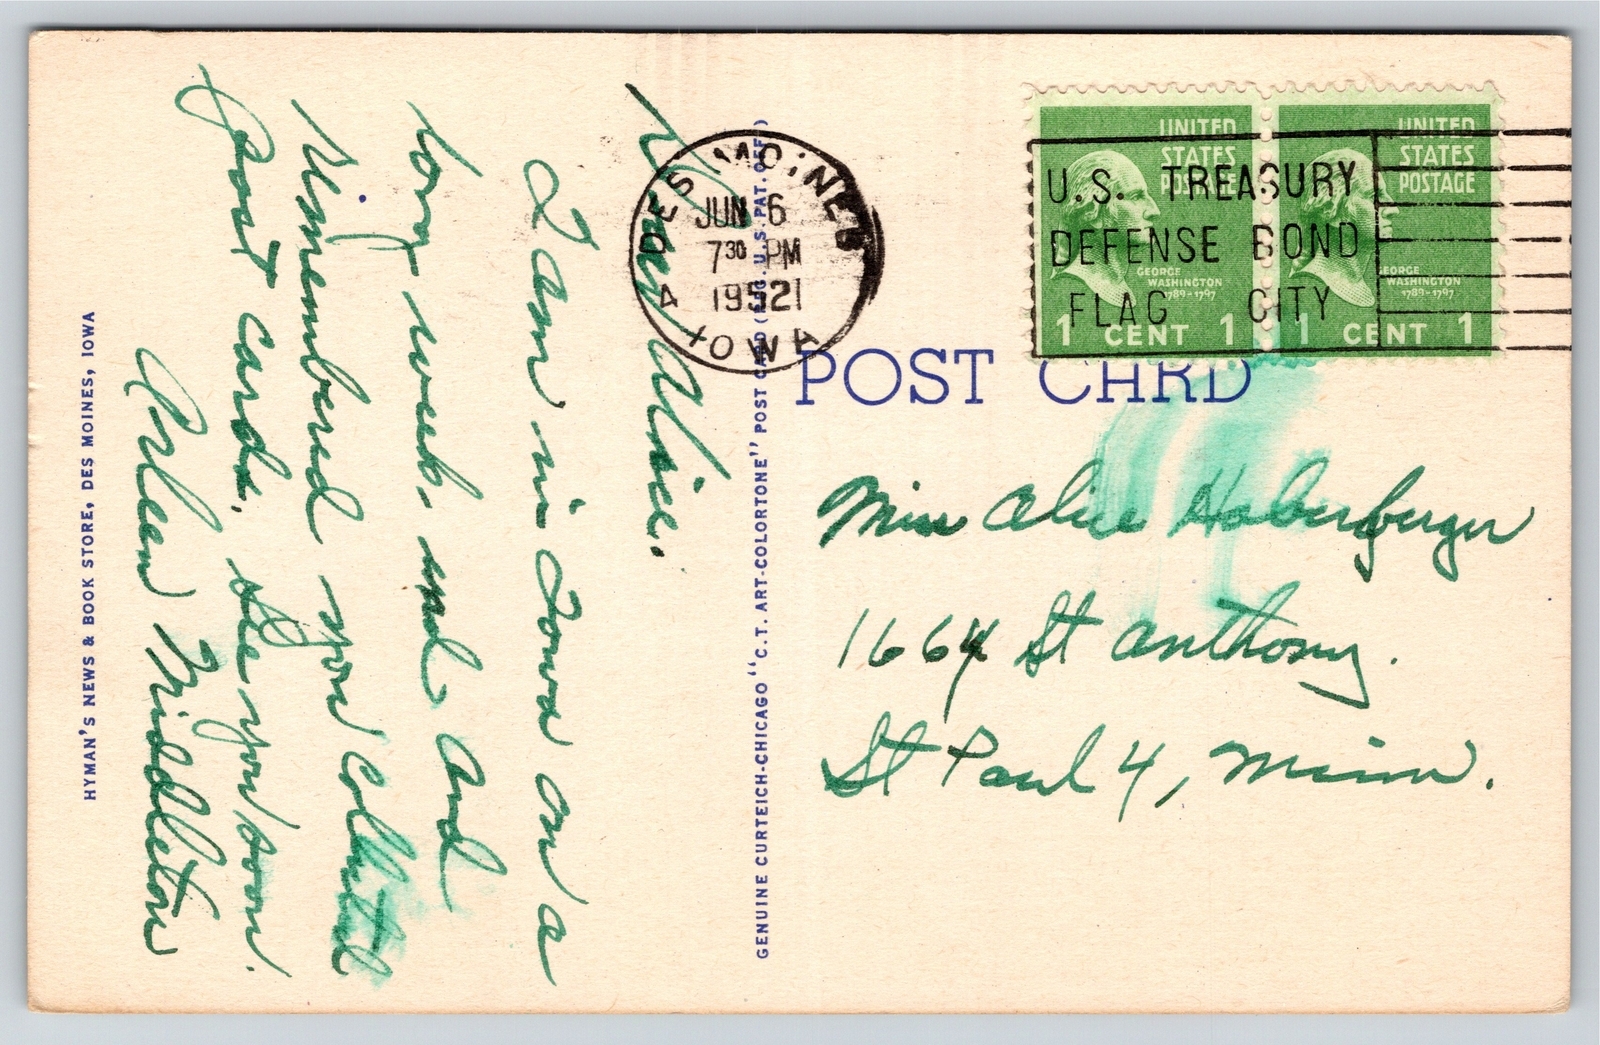 Dear Alice.
I am in Iowa on a
long week end and
Remembered you collected
post cards. See you soon.
Arleen Middleton
HYMAN'S NEWS & BOOK STORE, DES MOINES, IOWA
GENUINE CURTEICH-CHICAGO "C.T. ART-COLORTONE" POST CARD (REG. U.S. PAT. OFF.)
DES MOINES
JUN 6
7 30 PM
1952
IOWA
UNITED
STATES
POSTAGE
GEORGE
WASHINGTON
1789-1797
1 CENT 1
UNITED
STATES
POSTAGE
GEORGE
WASHINGTON
1789-1797
1 CENT 1
U.S. TREASURY
DEFENSE BOND
FLAG CITY
POST CARD
Miss Alice Haberberger
1664 St Anthony.
St Paul 4, Minn.